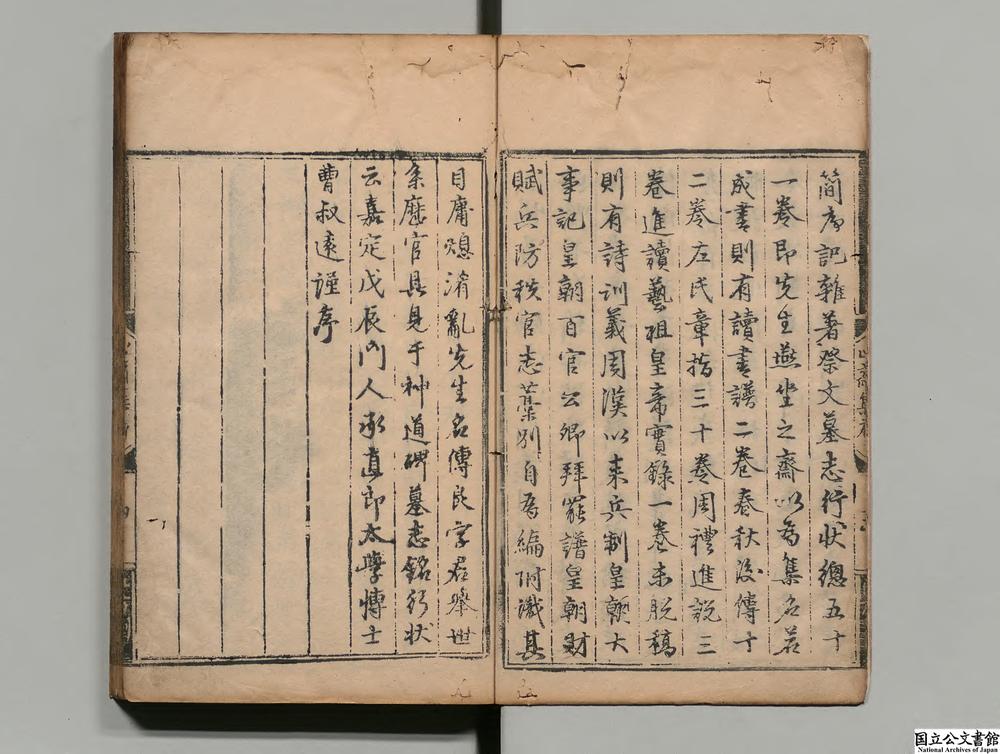 簡序記雜著祭文墓志行狀總五十
一卷即先生燕坐之齋以為集名若
成書則有讀書譜二卷春秋後傳十
二卷左氏章指三十卷周禮進說三
卷進讀藝祖皇帝實錄一卷未脫稿
則有詩訓義周漢以來兵制皇朝大
事記皇朝百官公卿拜罷譜皇朝財
賦兵防秩官志藁別自為編附識其
目庸熄淆亂先生名傅良字君舉世
系歷官具見于神道碑墓志銘行狀
云嘉定戊辰門人承直郎太學博士
曹叔遠謹序
国立公文書館
National Archives of Japan